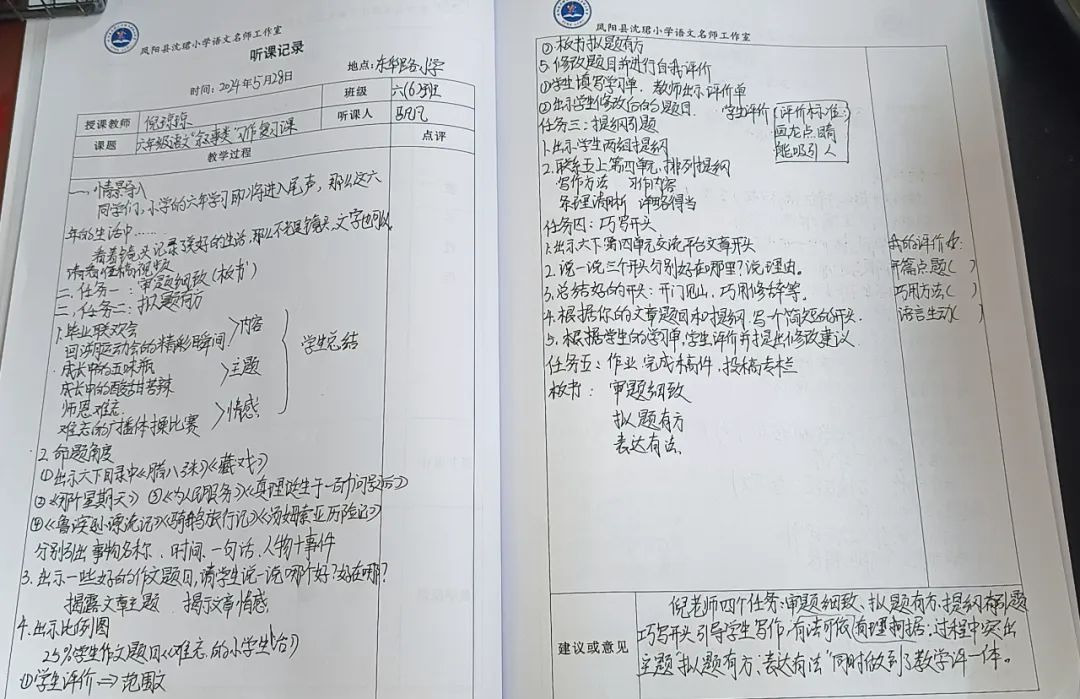 凤阳县沈珺小学语文名师工作室
听课记录
时间：2024年5月28日
地点：东华路小学
授课教师 倪琼琼 班级 六(6)班
课题 六年级语文“叙事类”习作复习课 听课人
教学过程 点评
一、情景导入
同学们，小学的六年学习即将进入尾声，那么这六
年的生活中……
看着镜头记录了美好的生活，那么不光是镜头，文字也可以
请看征稿视频
二、任务一：审题细致（板书）
二、任务二：拟题有方
1.毕业联欢会
回顾运动会的精彩瞬间 >内容
成长中的五味瓶
成长中的酸甜苦辣 >主题
师恩难忘
难忘的广播体操比赛 >情感
学生总结
2.命题角度
①出示六下目录中《腊八粥》《藏戏》
②《那个星期天》③《为人民服务》《真理诞生于一百个问号之后》
④《鲁滨逊漂流记》《骑鹅旅行记》《汤姆索亚历险记》
分别引出事物名称、时间、一句话、人物+事件
3.出示一些好的作文题目，请学生说一说哪个好？好在哪？
揭露文章主题 揭示文章情感
4.出示比例图
25%学生作文题目《难忘的小学生活》
①学生评价⇒范围大
凤阳县沈珺小学语文名师工作室
②板书拟题有方
5.修改题目并进行自我评价
①学生填写学习单，教师出示评价单
②出示学生修改后的题目 学生评价
评价标准：
画龙点睛
能吸引人
任务三：提纲引题
1.出示学生两组提纲
2.联系五上第四单元，排列提纲
写作方法 习作内容
条理清晰 详略得当
任务四：巧写开头
1.出示六下第四单元交流平台文章开头
2.说一说三个开头分别好在哪里？说理由。
3.总结好的开头：开门见山，巧用修辞等。
4.根据你的文章题目和提纲，写一个简短的开头.
5.根据学生的学习单，学生评价并提出修改建议
我的评价：
开篇点题( )
巧用方法( )
语言生动( )
任务五：作业：完成稿件，投稿专栏
板书： 审题细致
拟题有方
表达有法
建议或意见
倪老师四个任务：审题细致、拟题有方、提纲有引题
巧写开头引导学生写作，有法可依，有理可据；过程中突出
主题“拟题有方；表达有法”同时做到了教学评一体。